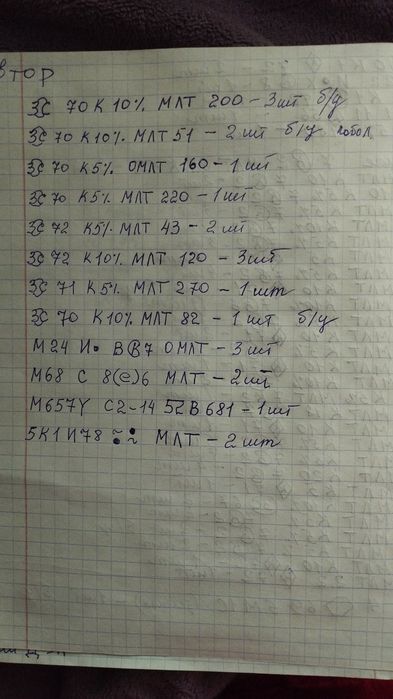 втор
ЗС 70 К 10% МЛТ 200 - 3 шт б/у
ЗС 70 К10% МЛТ 51 - 2 шт б/у
ЗС 70 К5% ОМЛТ 160 - 1 шт
ЗС 70 К5% МЛТ 220 - 1 шт
ЗС 72 К5% МЛТ 43 - 2 шт
ЗС 72 К10% МЛТ 120 - 3шт
ЗС 71 К5% МЛТ 270 - 1 шт
ЗС 70 К10% МЛТ 82 - 1 шт б/у
М24 И• В В7 ОМЛТ - 3 шт
М68 С 8(е)6 МЛТ - 2шт
М657У С2-14 В 681 - 1 шт
5К1 И78 МЛТ - 2 шт